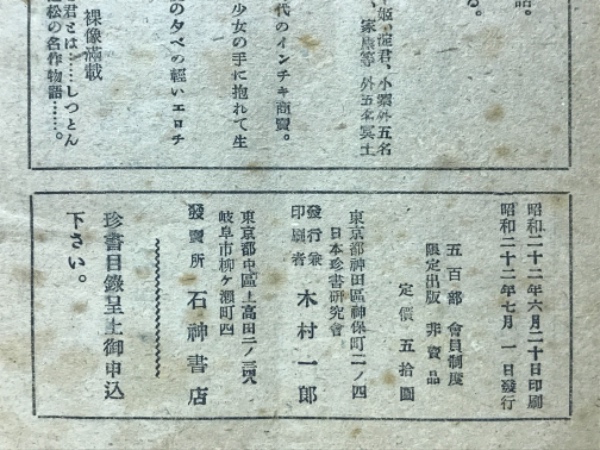 語。
る。
姫、淀君、小紫外五名
、家康等 外五名冥土
代のインチキ商賣。
少女の手に抱れて生
の夕べの輕いエロチ
裸像滿載
君とは……しつとん
松の名作物語……。
昭和二十二年六月二十日印刷
昭和二十二年七月一日發行
五百部 會員制度
限定出版 非賣品
定價五拾圓
東京都神田區神保町二ノ四
日本珍書硏究會
發行兼
印刷者 木村一郎
東京都中區上高田二ノ三
岐阜市柳ケ瀨町四
發賣所 石神書店
珍書目錄呈上御申込
下さい。